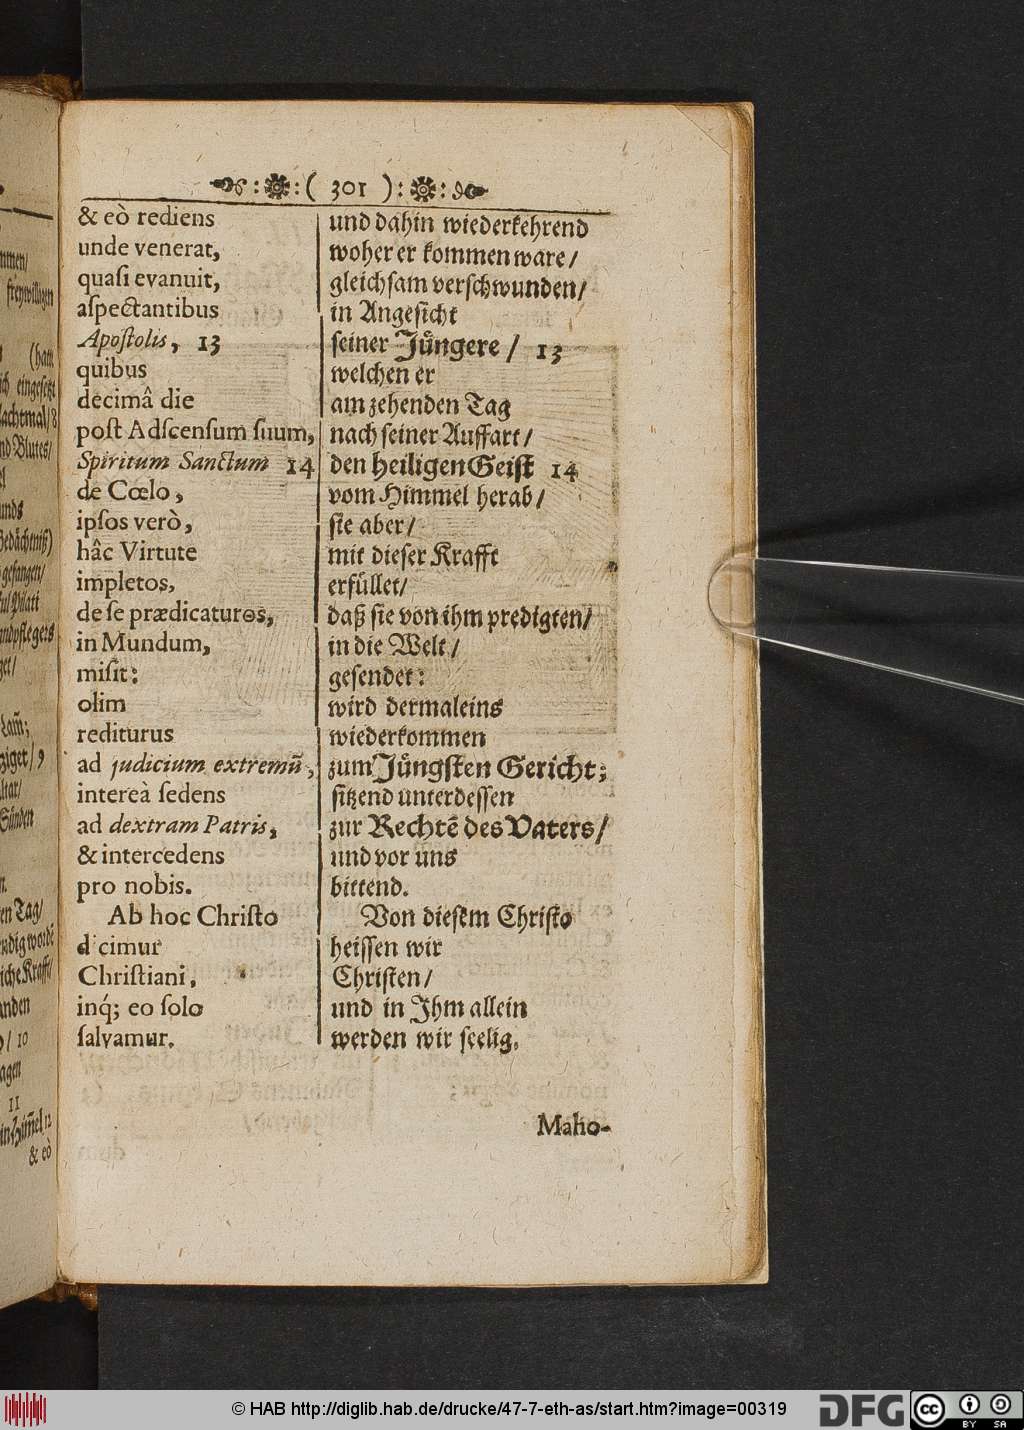 ( 301 )
& eò rediens
unde venerat,
quaſi evanuit,
aſpectantibus
Apoſtolis, 13
quibus
decimâ die
poſt Adſcenſum ſuum,
Spiritum Sanctum 14
de Cœlo,
ipſos verò,
hâc Virtute
impletos,
de ſe prædicaturos,
in Mundum,
miſit:
olim
rediturus
ad judicium extremũ,
intereà ſedens
ad dextram Patris,
& intercedens
pro nobis.
Ab hoc Chriſto
dicimur
Chriſtiani,
inq́; eo ſolo
ſalvamur.
und dahin wiederkehrend
woher er kommen ware/
gleichſam verſchwunden/
in Angeſicht
ſeiner Jüngere / 13
welchen er
am zehenden Tag
nach ſeiner Auffart/
den heiligen Geiſt 14
vom Himmel herab/
ſie aber/
mit dieſer Krafft
erfüllet/
daß ſie von ihm predigten/
in die Welt/
geſendet:
wird dermaleins
wiederkommen
zum Jüngſten Gericht;
ſitzend unterdeſſen
zur Rechtẽ des Vaters/
und vor uns
bittend.
Von dieſem Chriſto
heiſſen wir
Chriſten/
und in Ihm allein
werden wir ſeelig.
Maho-
& eò
© HAB http://diglib.hab.de/drucke/47-7-eth-as/start.htm?image=00319
DFG
cc
BY SA